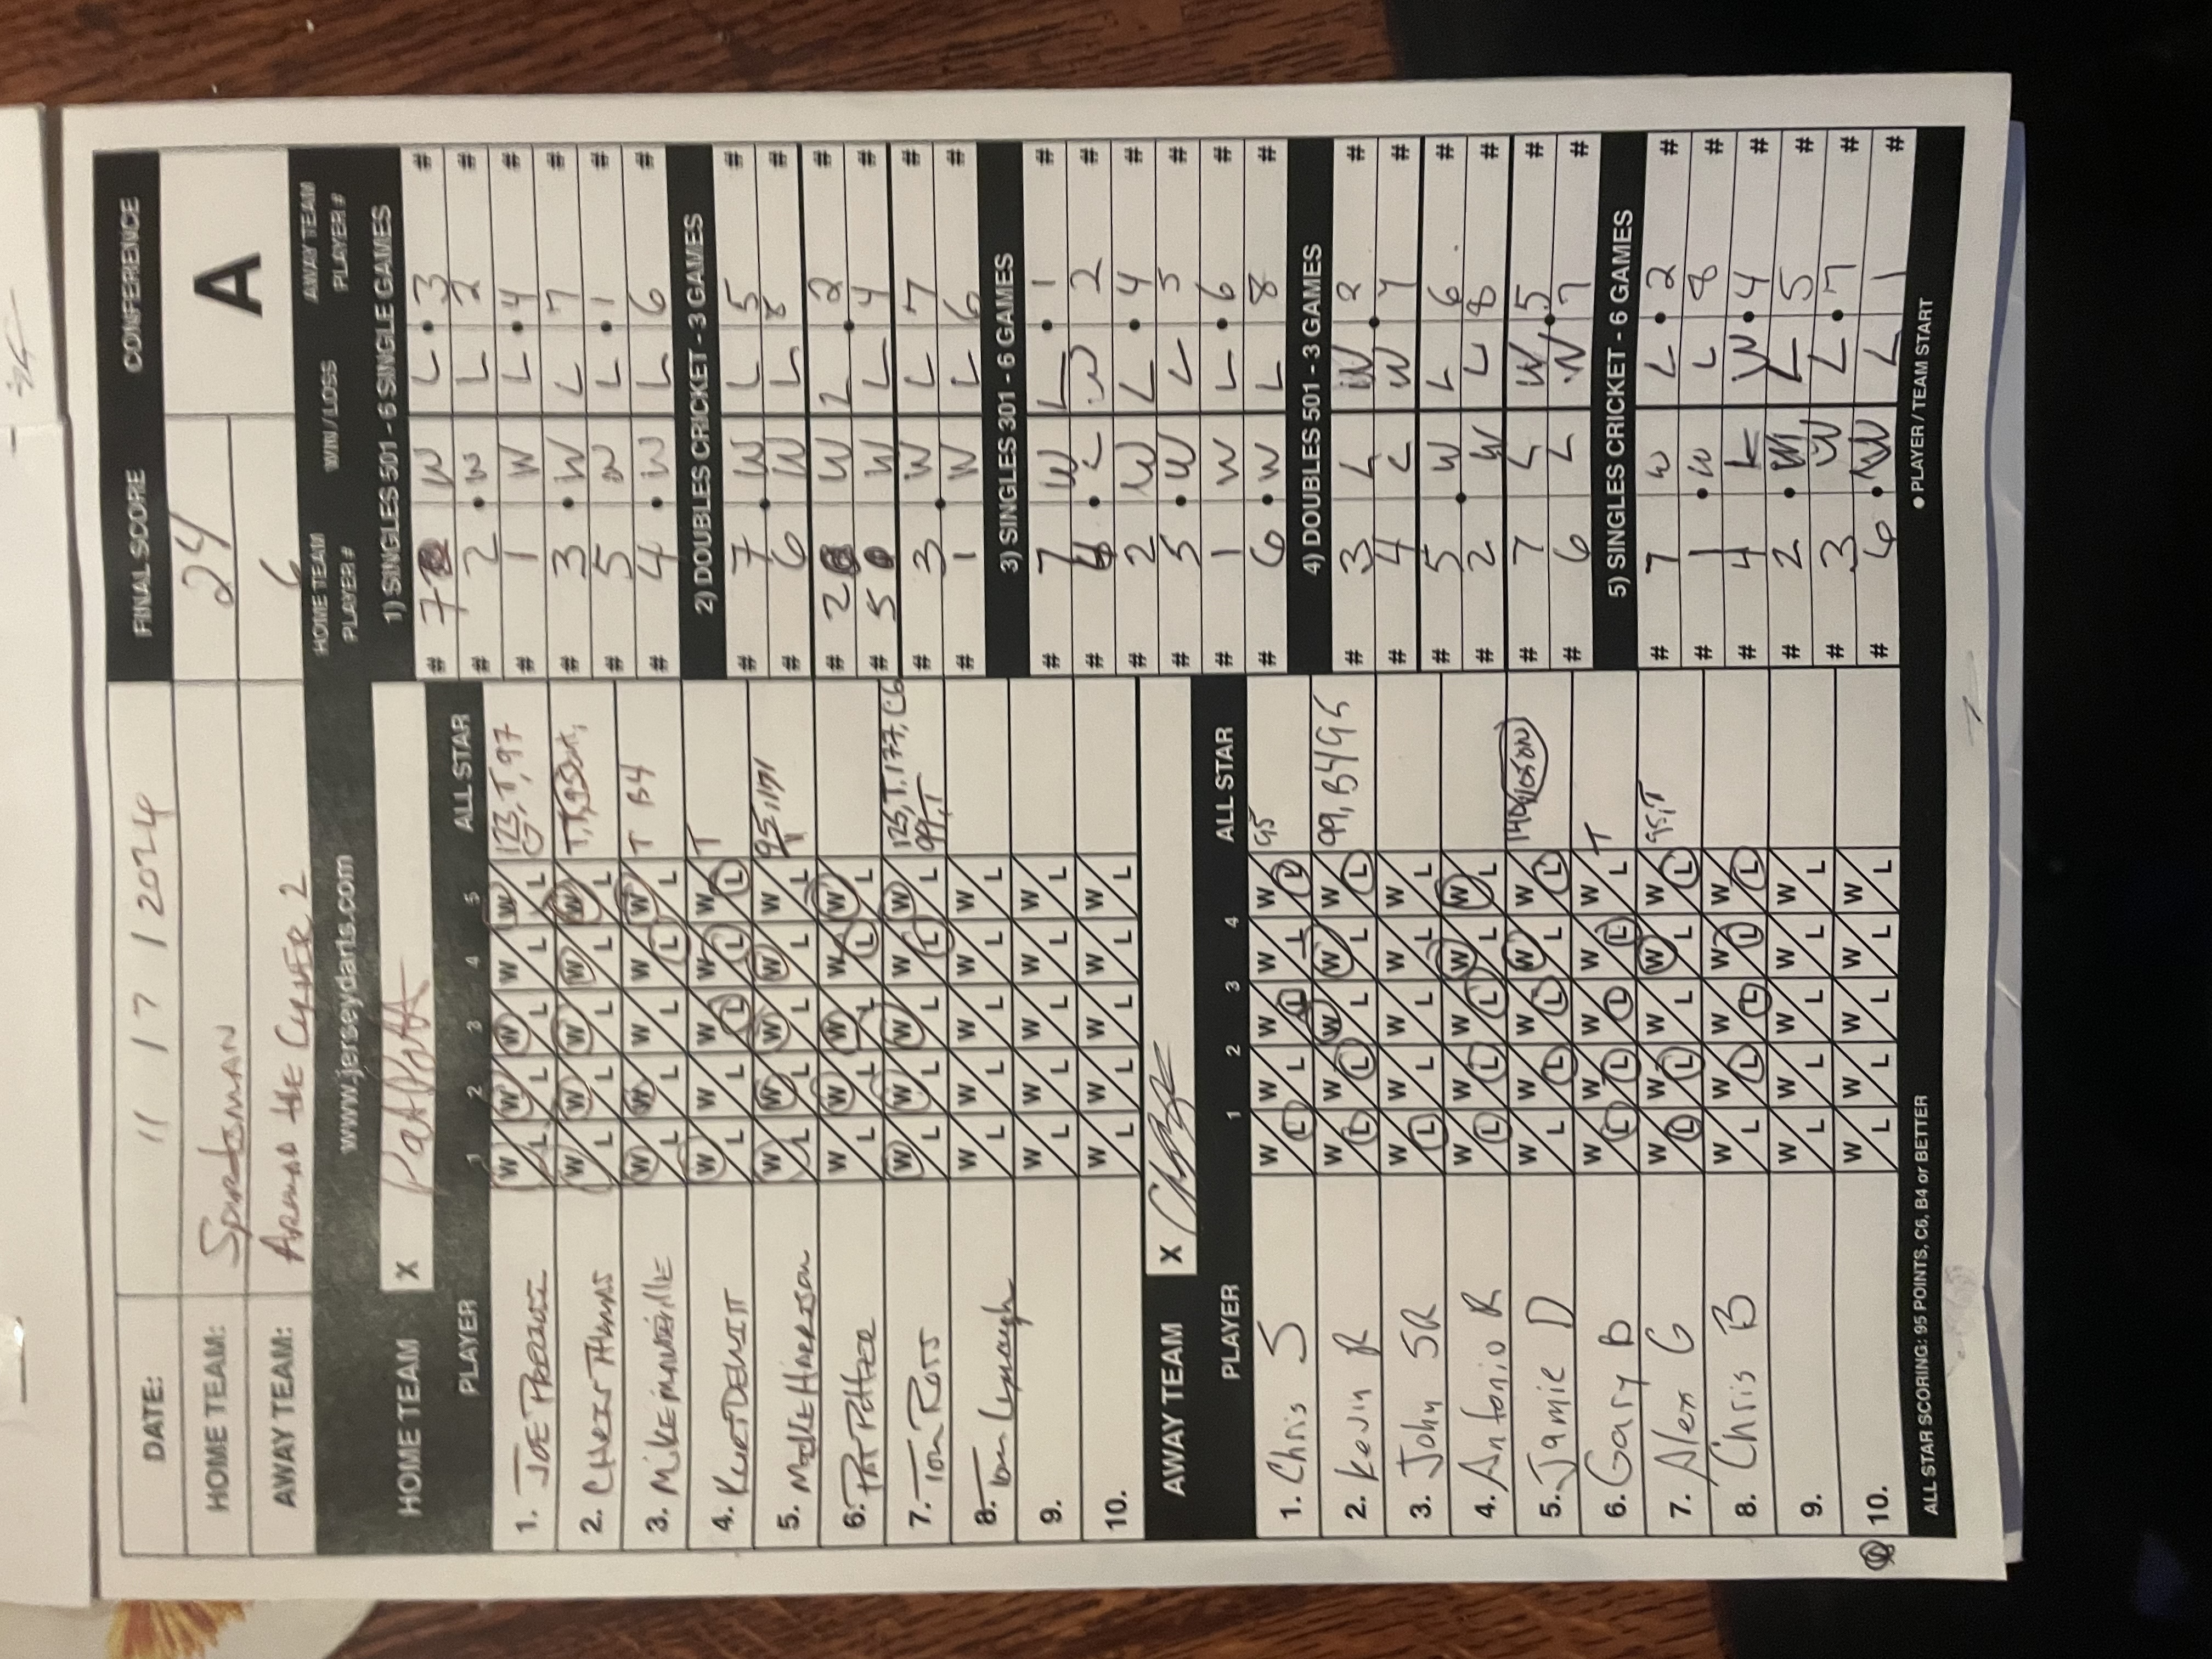 DATE: 11 / 7 / 2024
FINAL SCORE CONFERENCE
HOME TEAM: Sportsman 24
AWAY TEAM: Around the Corner 2 6
A
www.jerseydarts.com
HOME TEAM X
PLAYER 1 2 3 4 5 ALL STAR
1. W L W L W L W L W L 123, T, 97
2. CHRIS THOMAS W L W L W L W L W L
3. MIKE MANDEVILLE W L W L W L W L W L T B4
4. KURT DEWITT W L W L W L W L W L T
5. MIKE HARRISON W L W L W L W L W L 95, 171
6. PAT POTTER W L W L W L W L W L
7. TOM ROSS W L W L W L W L W L 125, T, 177, C6
99, T
8. Tom W L W L W L W L W L
9. W L W L W L W L W L
10. W L W L W L W L W L
AWAY TEAM X
PLAYER 1 2 3 4 ALL STAR
1. Chris S W L W L W L W L W L 95
2. Kevin R W L W L W L W L W L 99, B4 95
3. John SR W L W L W L W L W L
4. Antonio R W L W L W L W L W L
5. Jamie D W L W L W L W L W L 140
6. Gary B W L W L W L W L W L T
7. Alex G W L W L W L W L W L 95, T
8. Chris B W L W L W L W L W L
9. W L W L W L W L W L
10. W L W L W L W L W L
ALL STAR SCORING: 95 POINTS, C6, B4 or BETTER
HOME TEAM PLAYER # WIN / LOSS AWAY TEAM PLAYER #
1) SINGLES 501 - 6 SINGLE GAMES
# 7 W L • 3 #
# 2 • W L 2 #
# 1 W L • 4 #
# 3 • W L 7 #
# 5 W L • 1 #
# 4 • W L 6 #
2) DOUBLES CRICKET - 3 GAMES
# 7 W L 5 #
# 6 W L 8 #
# 2 W L 2 #
# 5 W L 4 #
# 3 W L 7 #
# 1 W L 6 #
3) SINGLES 301 - 6 GAMES
# 7 W L • 1 #
# • L W 2 #
# 2 W L • 4 #
# 5 • W L 5 #
# 1 W L • 6 #
# 6 • W L 8 #
4) DOUBLES 501 - 3 GAMES
# 3 L W 2 #
# 4 L W 4 #
# 5 W L 6 #
# 2 W L 8 #
# 7 L W 5 #
# 6 L W 7 #
5) SINGLES CRICKET - 6 GAMES
# 7 W L • 2 #
# 1 • W L 8 #
# 4 L W • 4 #
# 2 • W L 5 #
# 3 W L • 7 #
# 6 • W L 1 #
• PLAYER / TEAM START